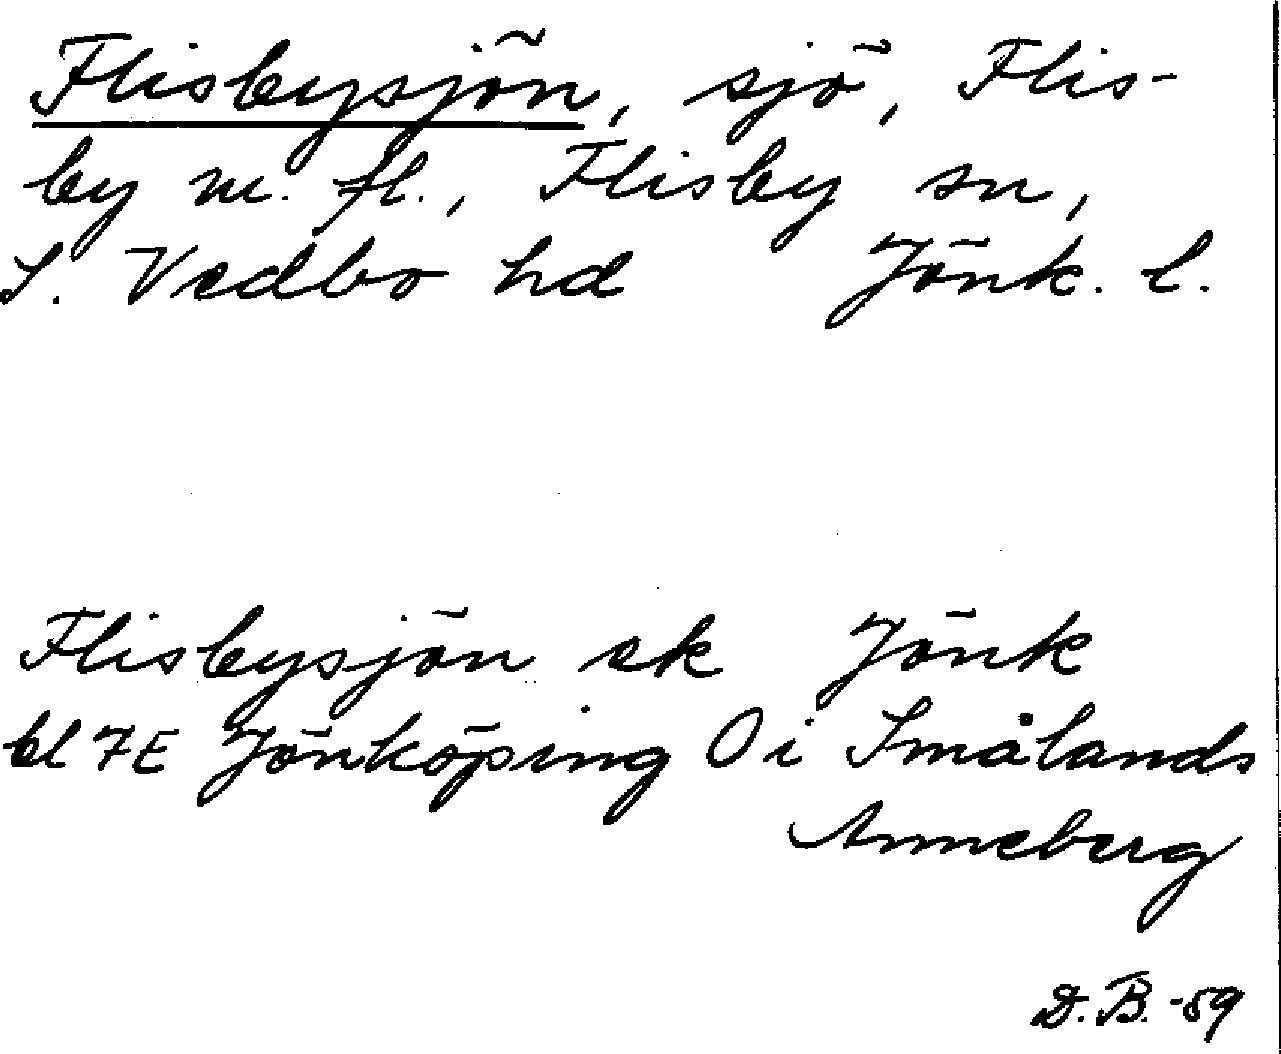 Flisbysjön, sjö, Flis-
by m. fl., Flisby sn,
S. Vedbo hd Jönk. l.
Flisbysjön ek Jönk
bl 7E Jönköping O i Smålands
Anneberg
D. B. -59